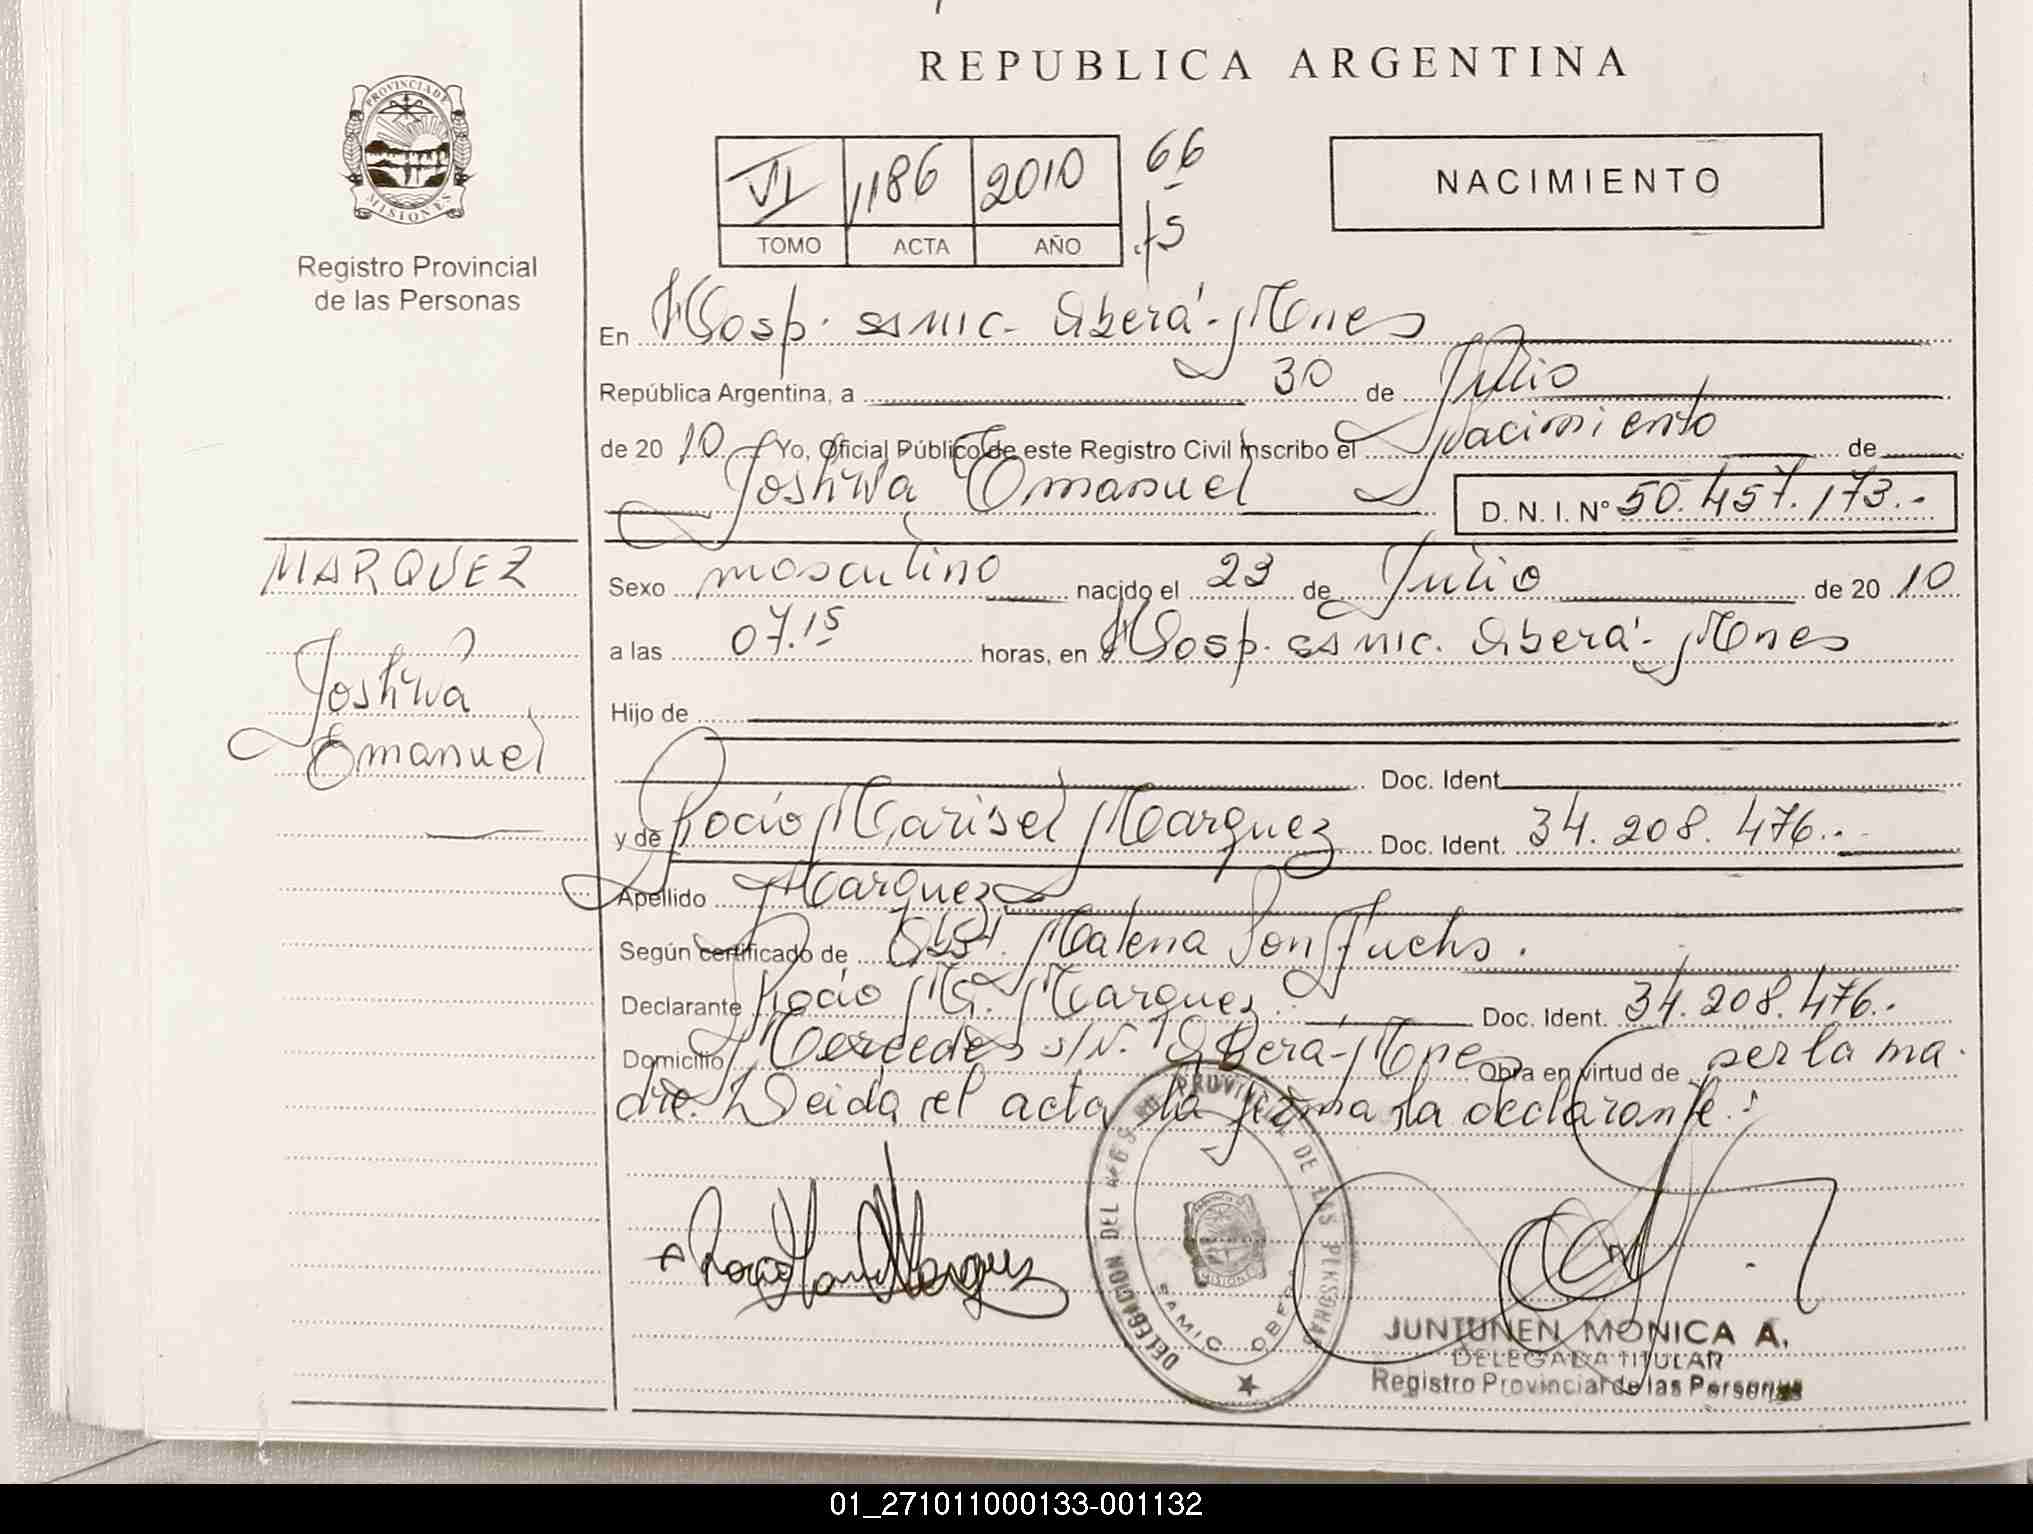 REPUBLICA ARGENTINA
PROVINCIA DE
MISIONES
Registro Provincial
de las Personas
VI 1186 2010 66
TOMO ACTA AÑO 15
NACIMIENTO
En Hosp. SAMIC. Oberá-Mnes
República Argentina, a 30 de Julio
de 20 10 Yo, Oficial Público de este Registro Civil inscribo el Nacimiento de
Joshua Emanuel D. N. I. Nº 50.457.173.-
MARQUEZ
Joshua
Emanuel
Sexo masculino nacido el 23 de Julio de 20 10
a las 07.15 horas, en Hosp. SAMIC. Oberá-Mnes
Hijo de
Doc. Ident.
y de Rocio Marisel Marquez Doc. Ident. 34.208.476.-
Apellido Marquez
Según certificado de Obst. Malena Von Fuchs.
Declarante Rocio M. Marquez. Doc. Ident. 34.208.476.-
Domicilio Mercedes s/N. Oberá-Mnes Obra en virtud de ser la ma-
dre. Leida el acta la firma la declarante.:
Rocio Marisel Marquez
DELEGACION DEL REG. PROVINCIAL DE LAS PERSONAS
MISIONES
SAMIC OBERA
JUNTUNEN MONICA A.
DELEGADA TITULAR
Registro Provincial de las Personas
01_271011000133-001132